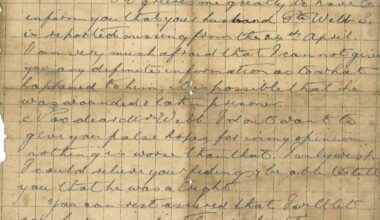 It grieves me greatly to have to
inform you that your husband Pte Webb
is reported missing from the 24th April.
I am very much afraid that I cannot give
you any definite information as to what
happened to him, it is possible that he
was wounded & taken prisoner.
Poor dear Mrs Webb. I don't want to
give you false hopes for in my opinion
nothing is worse than that. I only wish
I could relieve your feelings & be able to tell
you that he was alright.
You can rest assured that I will let